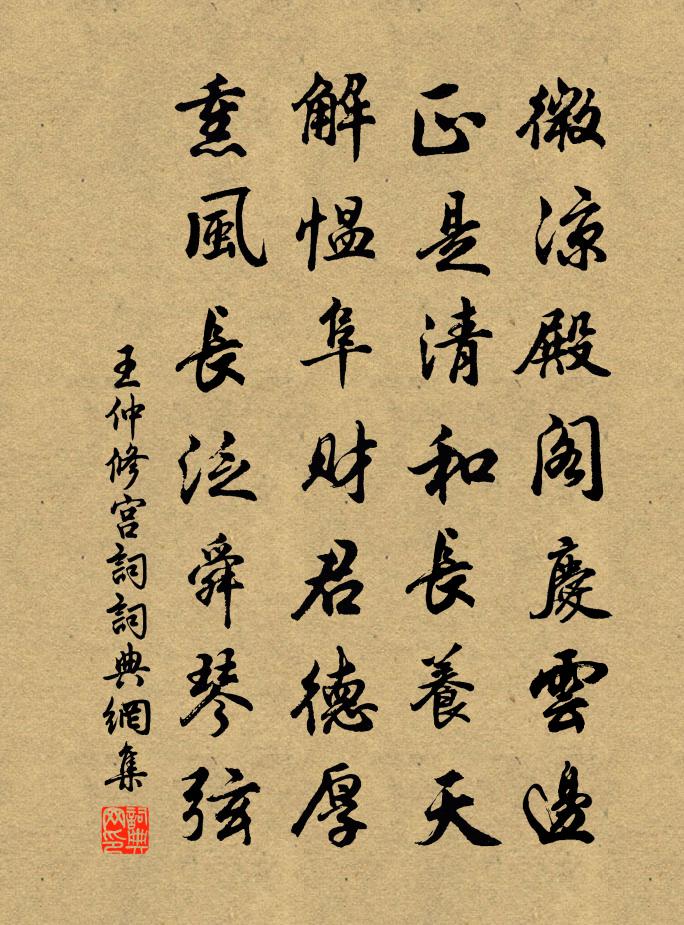 微涼殿閣慶雲邊
正是清和長養天
解慍阜財君德厚
熏風長泛舜琴弦
王仲修宮詞詞典網集
詞典网印